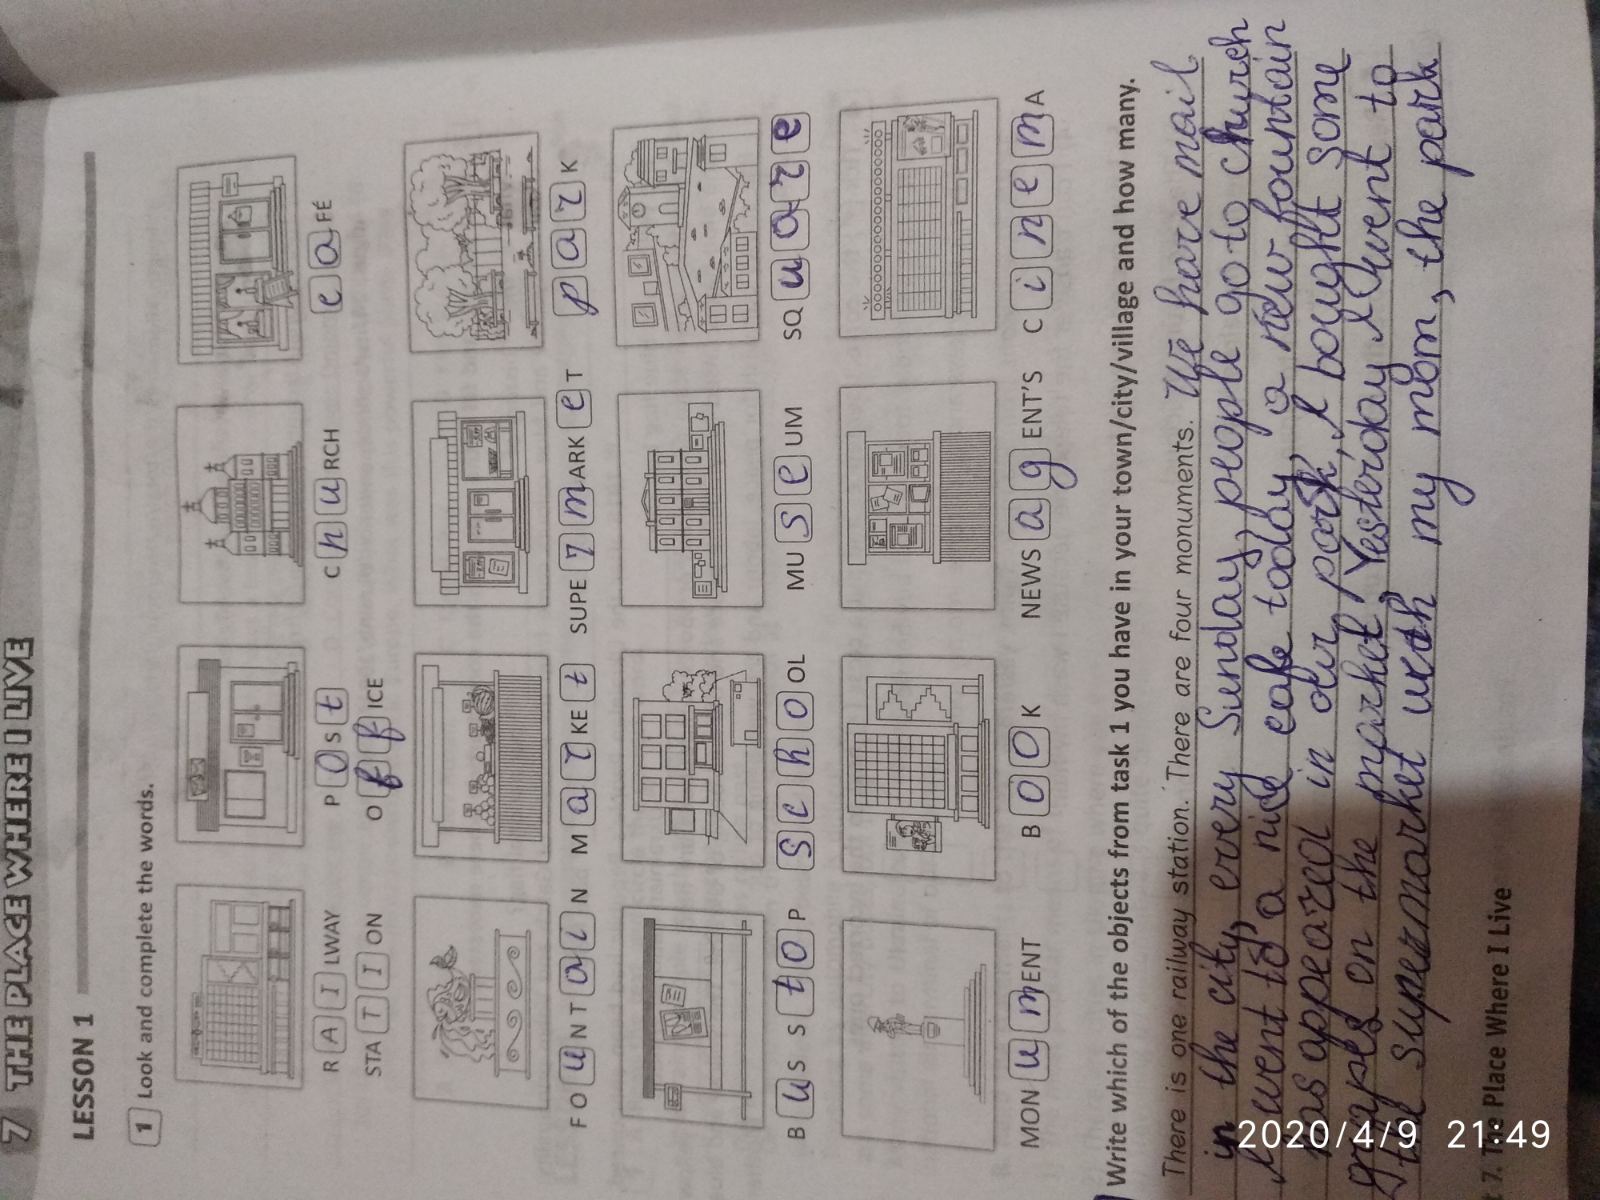 7 THE PLACE WHERE I LIVE
LESSON 1
1 Look and complete the words.
RAILWAY
STATION
POST
OFFICE
CHURCH
CAFÉ
FOUNTAIN
MARKET
SUPERMARKET
PARK
BUS STOP
SCHOOL
MUSEUM
SQUARE
MONUMENT
BOOK
NEWSAGENT'S
CINEMA
Write which of the objects from task 1 you have in your town/city/village and how many.
There is one railway station. There are four monuments. We have mail
in the city, every Sunday, people go to church
I went to a nice cafe today, a new fountain
has appeared in our park, I bought some
grapes on the market, Yesterday I went to
the supermarket with my mom, the park
7. The Place Where I Live
2020/4/9 21:49